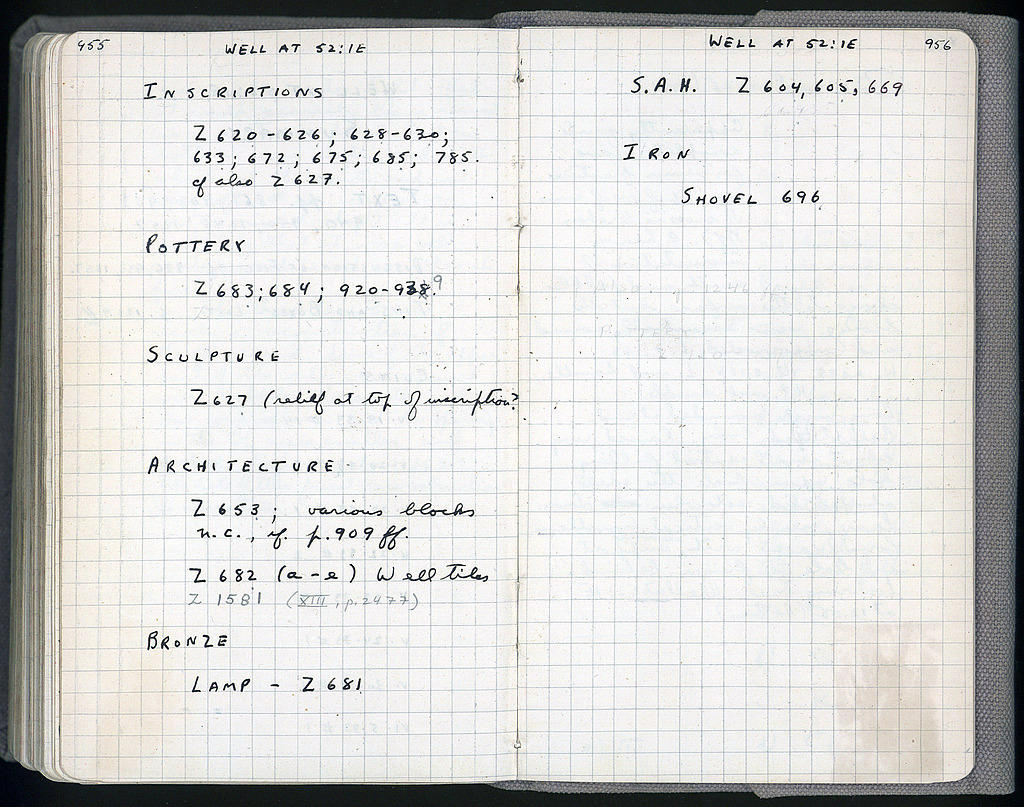 955
WELL AT 52:1E
INSCRIPTIONS
Z 620-626; 628-630;
633; 672; 675; 685; 785.
cf also Z 627.
POTTERY
Z 683; 684; 920-939.
SCULPTURE
Z 627 (relief at top of inscription?
ARCHITECTURE
Z 653; various blocks
n.c., cf. p. 909 ff.
Z 682 (a-e) Well tiles
Z 1581 (XIII, p. 2477)
BRONZE
LAMP - Z 681
WELL AT 52:1E
956
S.A.H. Z 604, 605, 669
IRON
SHOVEL 696